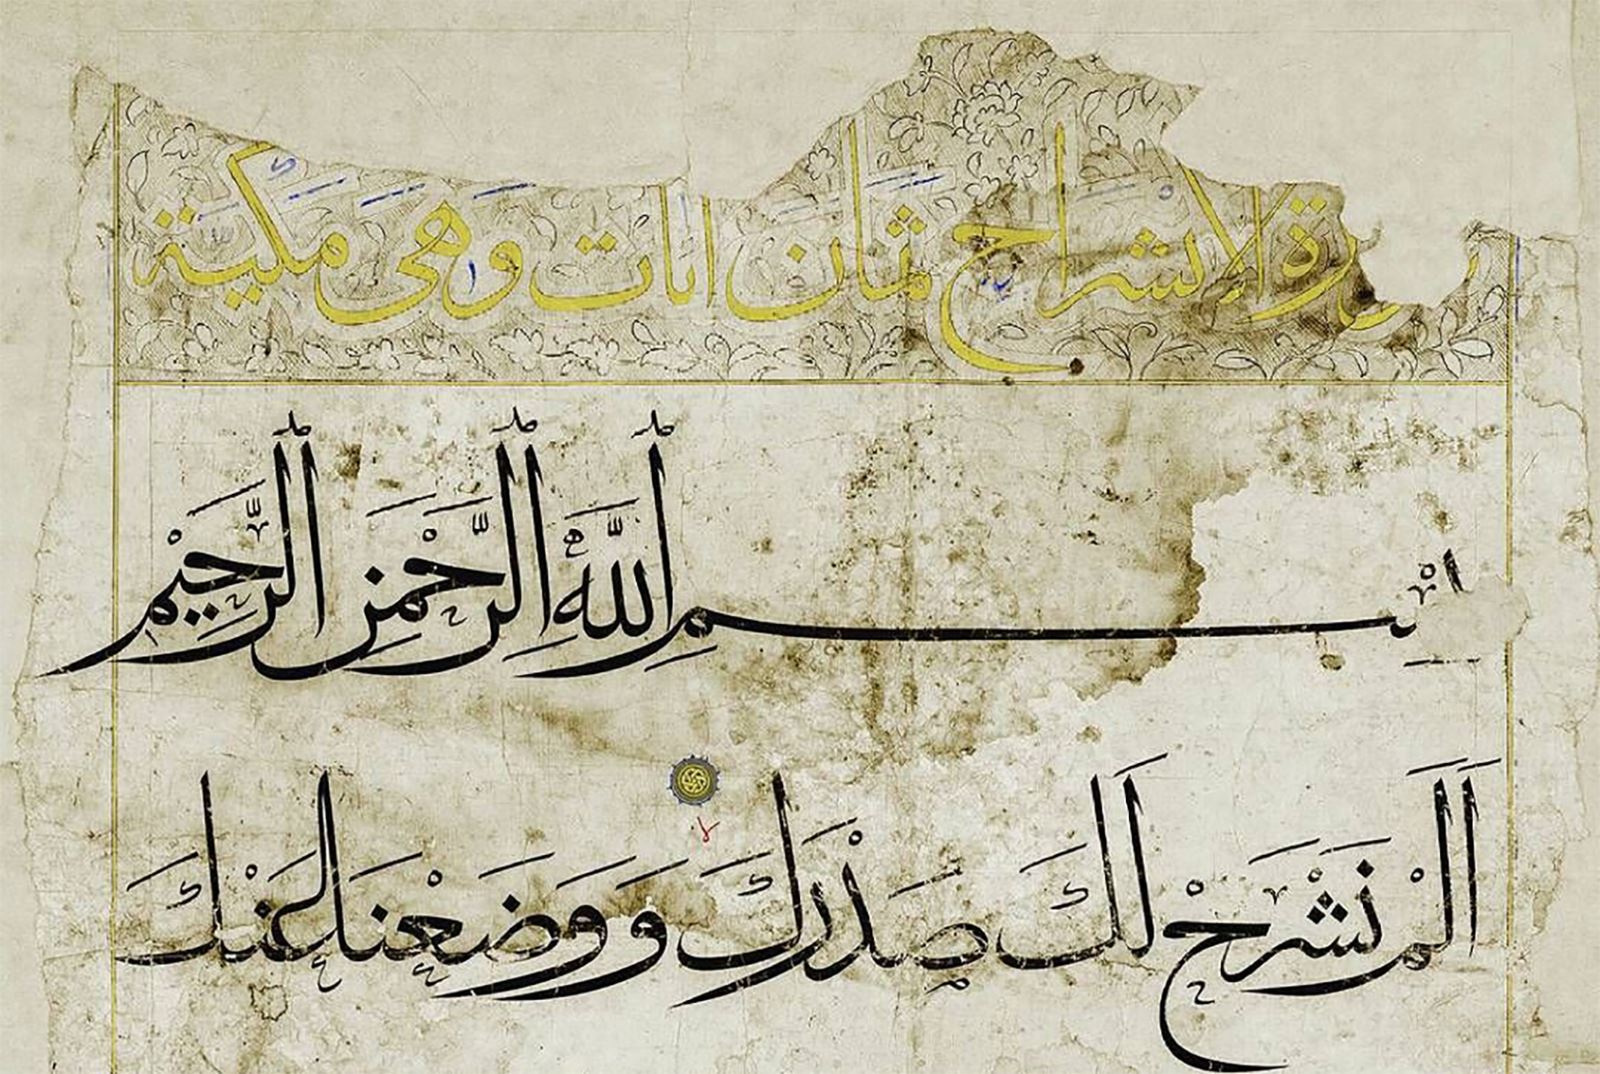 سورة الانشراح ثمان ايات وهى مكية
بِسْمِ ٱللَّهِ ٱلرَّحْمَنِ ٱلرَّحِيمِ
أَلَمْ نَشْرَحْ لَكَ صَدْرَكَ وَوَضَعْنَا عَنْكَ